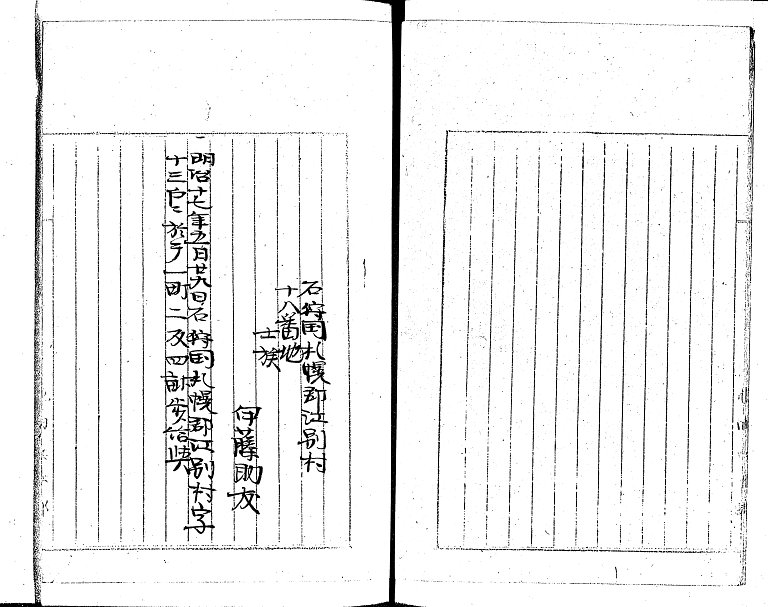 石狩国札幌郡江別村
十八番地
士族
伊藤助友
一明治十七年五月廿九日石狩国札幌郡江別村字
十三戸ニ於テ一町二反四畝歩給与